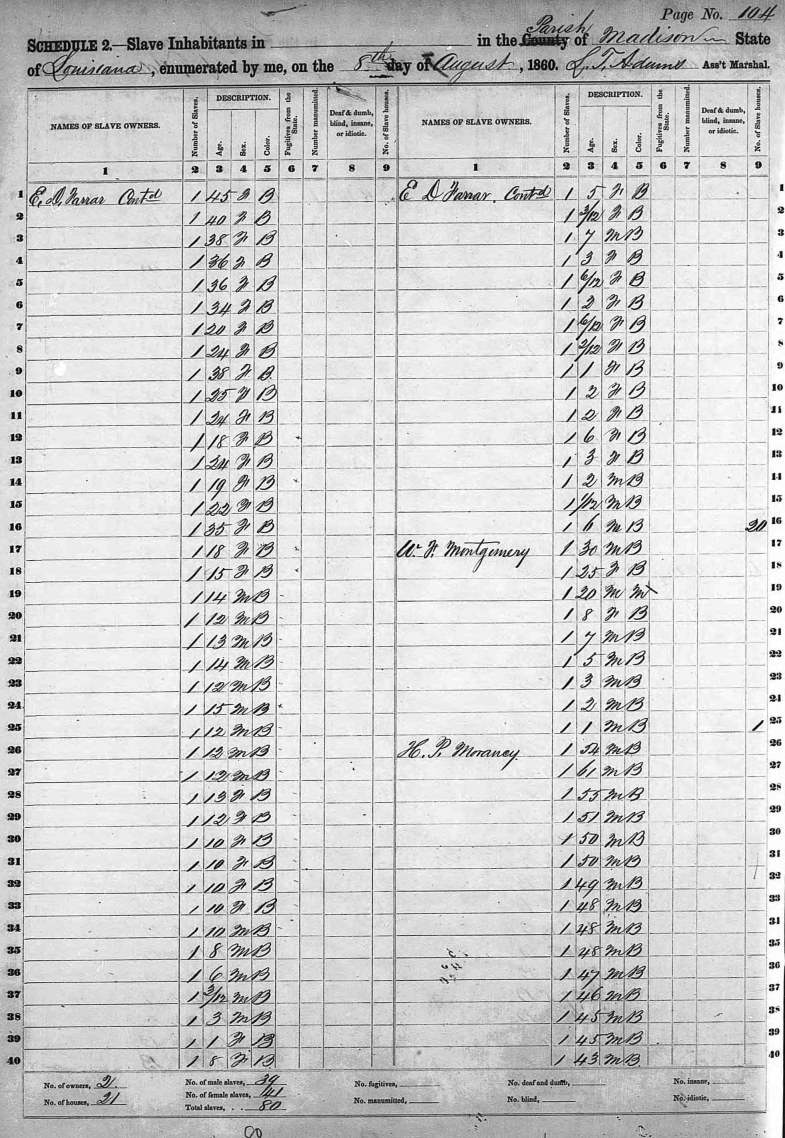 Page No. 104
SCHEDULE 2.—Slave Inhabitants in in the County Parish of Madison State
of Louisiana, enumerated by me, on the 8th day of August, 1860. L. T. Adams Ass't Marshal.
NAMES OF SLAVE OWNERS. Number of Slaves. DESCRIPTION. Age. Sex. Color. Fugitives from the State. Number manumitted. Deaf & dumb, blind, insane, or idiotic. No. of Slave houses. NAMES OF SLAVE OWNERS. Number of Slaves. DESCRIPTION. Age. Sex. Color. Fugitives from the State. Number manumitted. Deaf & dumb, blind, insane, or idiotic. No. of Slave houses.
1 2 3 4 5 6 7 8 9 1 2 3 4 5 6 7 8 9
1 E. D. Farrar Contd 1 45 F B E D Farrar Contd 1 5 F B 1
2 1 40 F B 1 3/12 F B 2
3 1 38 F B 1 7 M B 3
4 1 36 F B 1 3 F B 4
5 1 36 F B 1 6/12 F B 5
6 1 34 F B 1 2 F B 6
7 1 20 F B 1 6/12 F B 7
8 1 24 F B 1 3/12 F B 8
9 1 38 F B 1 1 F B 9
10 1 25 F B 1 2 F B 10
11 1 24 F B 1 2 F B 11
12 1 18 F B 1 6 F B 12
13 1 24 F B 1 3 F B 13
14 1 19 F B 1 2 M B 14
15 1 22 F B 1 1/12 M B 15
16 1 35 F B 1 6 M B 20 16
17 1 18 F B W. F. Montgomery 1 30 M B 17
18 1 15 F B 1 25 F B 18
19 1 14 M B 1 20 M M 19
20 1 12 M B 1 8 F B 20
21 1 13 M B 1 7 M B 21
22 1 14 M B 1 5 M B 22
23 1 12 M B 1 3 M B 23
24 1 15 M B 1 2 M B 24
25 1 12 M B 1 1 M B 1 25
26 1 12 M B H. P. Morancy 1 54 M B 26
27 1 12 M B 1 61 M B 27
28 1 13 F B 1 55 M B 28
29 1 12 F B 1 51 M B 29
30 1 10 F B 1 50 M B 30
31 1 10 F B 1 50 M B 31
32 1 10 F B 1 49 M B 32
33 1 10 F B 1 48 M B 33
34 1 10 M B 1 48 M B 34
35 1 8 M B 1 48 M B 35
36 1 6 M B 1 47 M B 36
37 1 3/12 M B 1 46 M B 37
38 1 3 M B 1 45 M B 38
39 1 1 F B 1 45 M B 39
40 1 8 F B 1 43 M B 40
No. of owners, 2 No. of male slaves, 39 No. fugitives, No. of deaf and dumb, No. insane,
No. of houses, 21 No. of female slaves, 41 No. manumitted, No. blind, No. idiotic,
Total slaves, 80